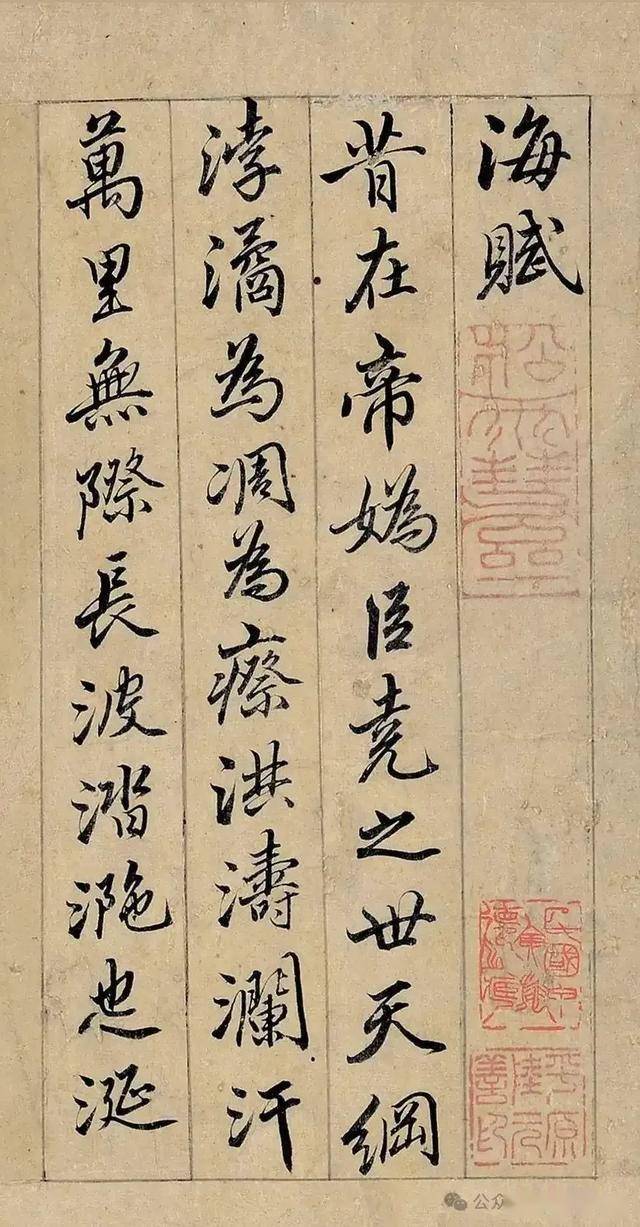 海賦
昔在帝媯臣堯之世天綱
浡潏為凋為瘵洪濤瀾汗
萬里無際長波涾迆涎
公众